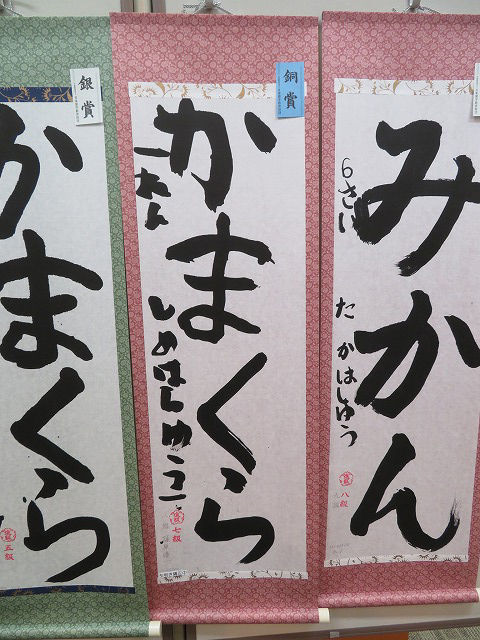 みかん
6さい
たかはしゆう
八級
銅賞
かまくら
一ねん
しめはしゆうこ
七級
銀賞
かまくら
五級